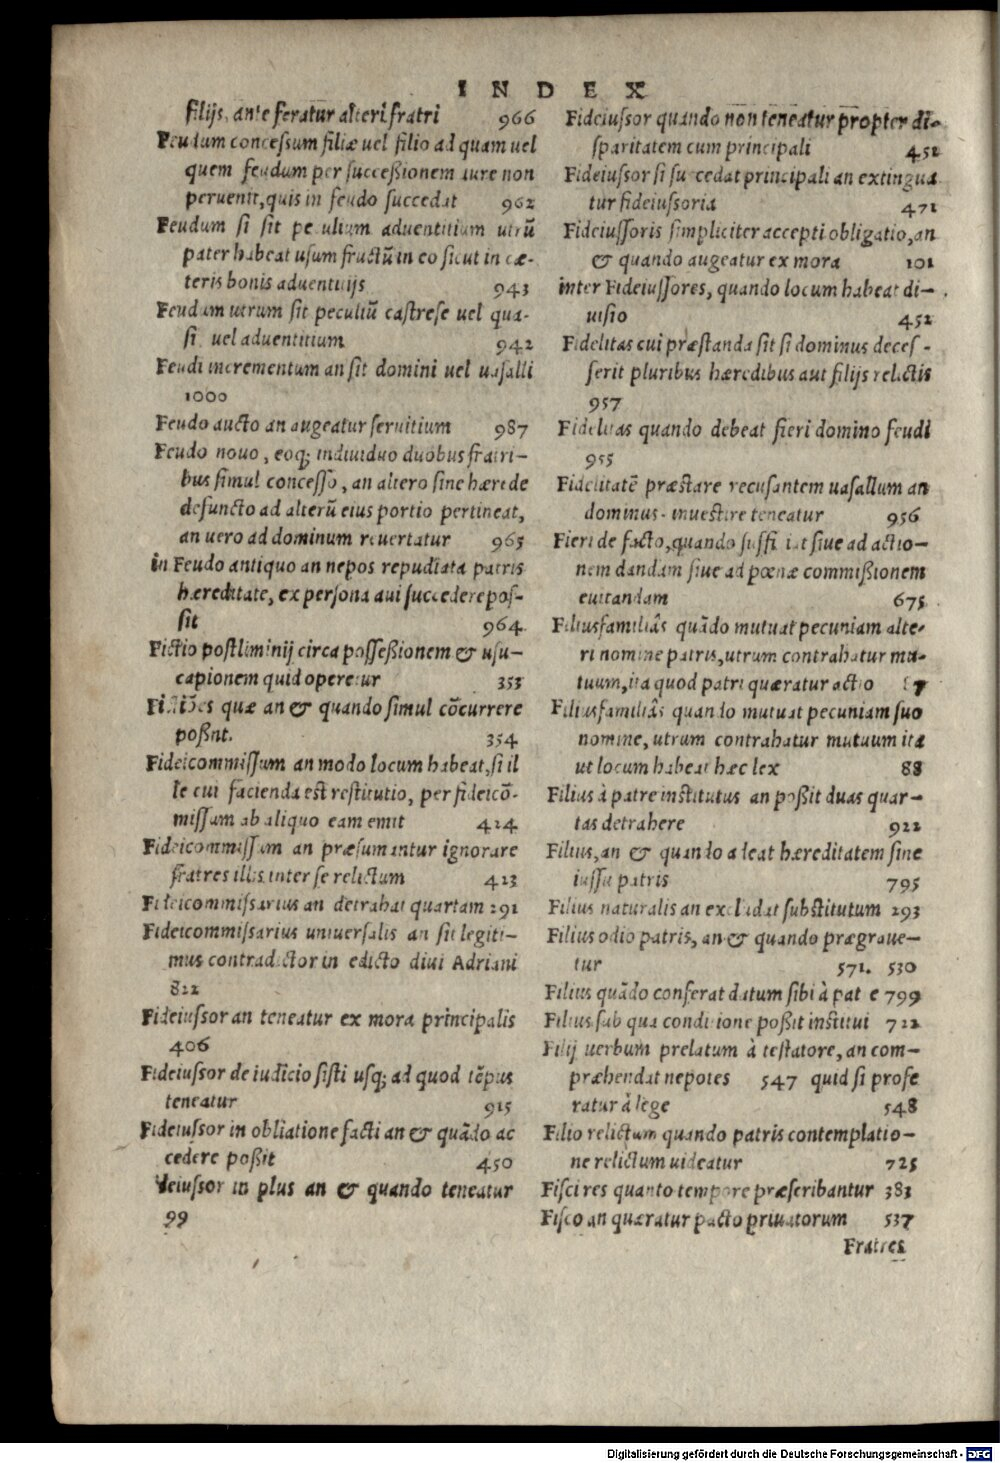 INDEX
filijs, ante feratur alteri fratri 966
Feudum concessum filiæ uel filio ad quam uel
quem feudum per succeßionem iure non
peruenit, quis in feudo succedat 962
Feudum si sit peculium aduentitium utrũ
pater habeat usum fructũ in eo sicut in cæ-
teris bonis aduentitijs 943
Feudum utrum sit peculiũ castrese uel qua-
si uel aduentitium 942
Feudi incrementum an sit domini uel uasalli
1000
Feudo aucto an augeatur seruitium 987
Feudo nouo, eoq; indiuiduo duobus fratri-
bus simul concesso, an altero sine hærede
defuncto ad alterũ eius portio pertineat,
an uero ad dominum reuertatur 965
in Feudo antiquo an nepos repudiata patris
hæreditate, ex persona aui succedere pos-
sit 964
Fictio postliminij circa possessionem & usu-
capionem quid operetur 353
Fictiões quæ an & quando simul cõcurrere
poßnt. 354
Fideicommissum an modo locum habeat, si il
le cui facienda est restitutio, per fideicõ-
missum ab aliquo eam emit 424
Fideicommissum an præsumantur ignorare
fratres illis inter se relictum 423
Fideicommissarius an detrahat quartam 291
Fideicommissarius uniuersalis an sit legiti-
mus contradictor in edicto diui Adriani
822
Fideiussor an teneatur ex mora principalis
406
Fideiussor de iudicio sisti usq; ad quod tẽpus
teneatur 915
Fideiussor in obliatione facti an & quãdo ac
cedere poßit 450
deiussor in plus an & quando teneatur
99
Fideiussor quando non teneatur propter di-
sparitatem cum principali 452
Fideiussor si succedat principali an extingua
tur fideiussoria 471
Fideiussoris simpliciter accepti obligatio, an
& quando augeatur ex mora 101
inter Fideiussores, quando locum habeat di-
uisio 452
Fidelitas cui præstanda sit si dominus deces-
serit pluribus hæredibus aut filijs relictis
957
Fidelitas quando debeat fieri domino feudi
955
Fidelitatẽ præstare recusantem uasallum an
dominus inuestire teneatur 956
Fieri de facto, quando suffi iat siue ad actio-
nem dandam siue ad pœnæ commißionem
euitandam 675
Filiusfamiliâs quãdo mutuat pecuniam alte-
ri nomine patris, utrum contrahatur mu-
tuum, ita quod patri quæratur actio 87
Filiusfamiliâs quando mutuat pecuniam suo
nomine, utrum contrahatur mutuum itæ
ut locum habeat hæc lex 88
Filius à patre institutus an poßit duas quar-
tas detrahere 922
Filius, an & quando adeat hæreditatem sine
iussu patris 795
Filius naturalis an excludat substitutum 293
Filius odio patris, an & quando prægraue-
tur 571. 530
Filius quãdo conferat datum sibi à pat e 799
Filius sub qua conditione poßit institui 722
Filij uerbum prelatum à testatore, an com-
præhendat nepotes 547 quid si profe
ratur à lege 548
Filio relictum quando patris contemplatio-
ne relictum uideatur 725
Fisci res quanto tempore præscribantur 383
Fisco an quæratur pacto priuatorum 537
Fratres
Digitalisierung gefördert durch die Deutsche Forschungsgemeinschaft - DFG